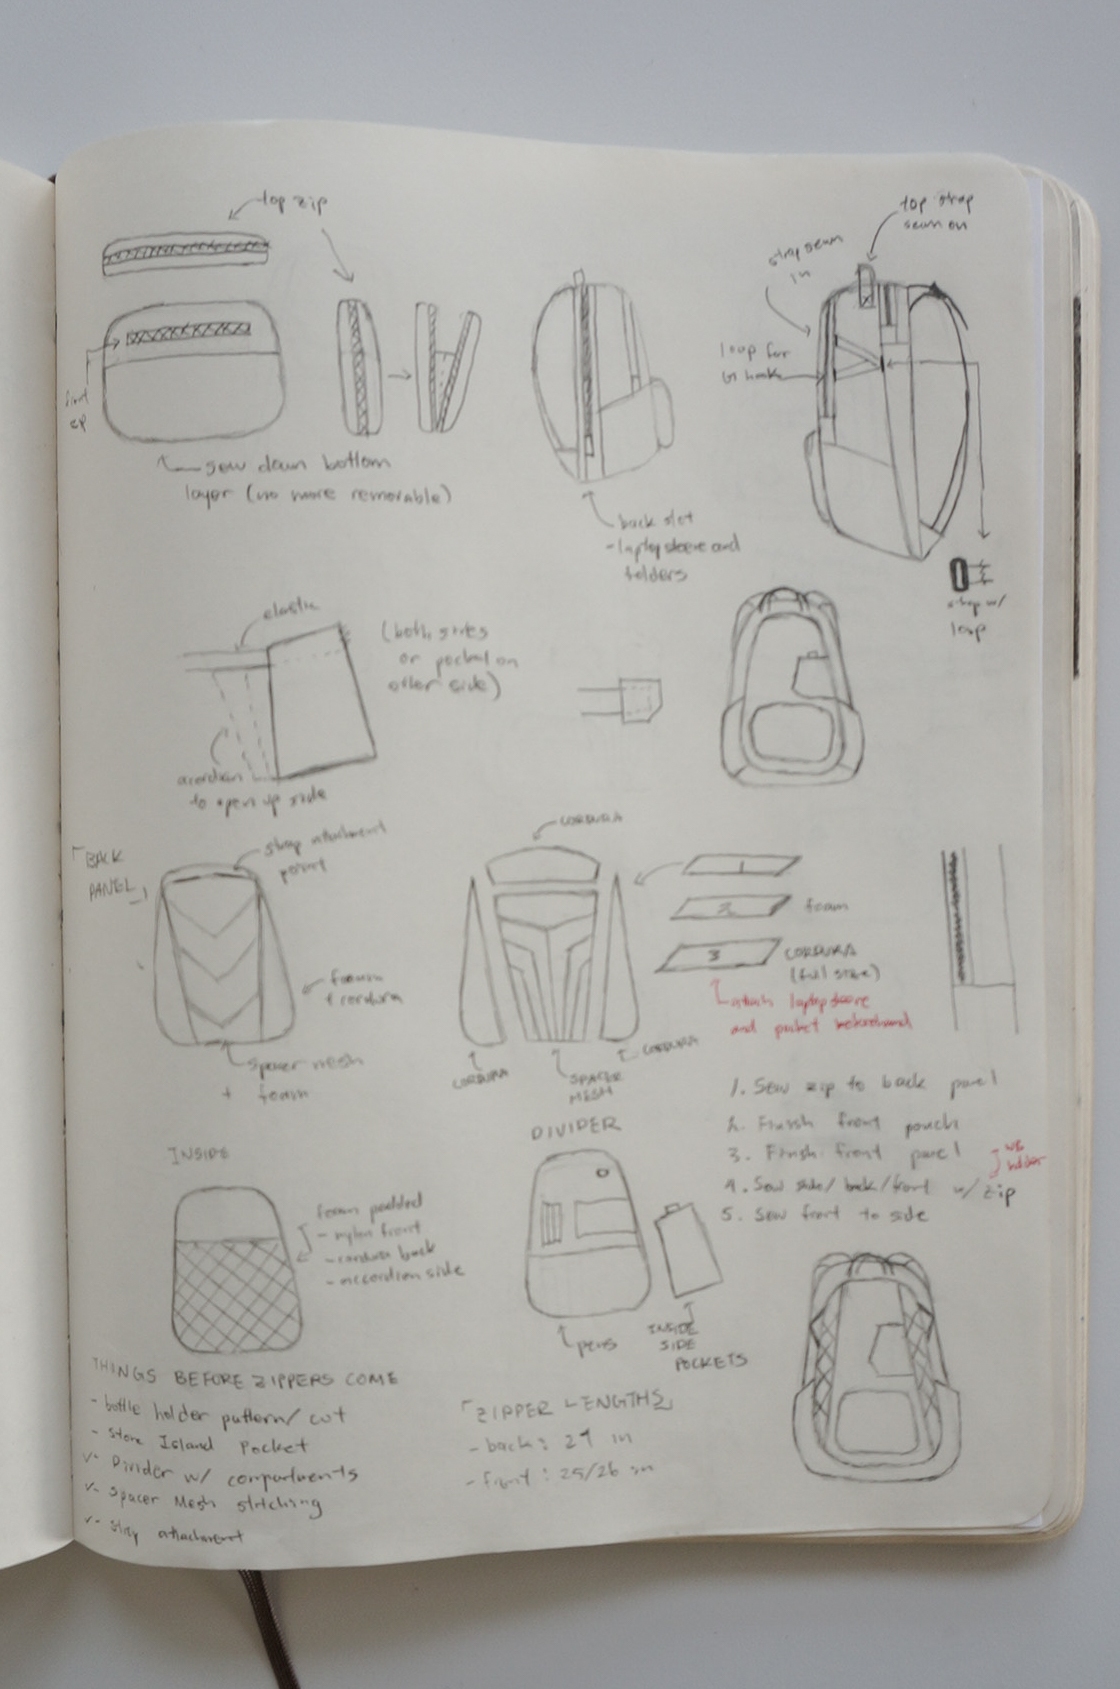 top zip
top strap
sewn on
strap sewn
in
loop for
G hook
front
zip
sew down bottom
layer (no more removable)
back slot
- laptop sleeve and
folders
strap w/
loop
elastic
(both sides
or pocket on
other side)
acordian
to open up side
BACK
PANEL
strap attachment
point
foam
+ cordura
spacer mesh
+ foam
CORDURA
1
2
foam
3
CORDURA
(full size)
attach laptop sleeve
and pocket beforehand
CORDURA
SPACER
MESH
CORDURA
1. Sew zip to back panel
2. Finish front pouch
3. Finish front panel
holder
4. Sew side/back/front w/ zip
5. Sew front to side
INSIDE
foam padded
- nylon front
- cordura back
- accordian side
DIVIDER
pens
INSIDE
SIDE
POCKETS
THINGS BEFORE ZIPPERS COME
- bottle holder pattern/cut
- Store Island Pocket
v- Divider w/ compartments
v- Spacer Mesh stitching
v- strap attachment
ZIPPER LENGTHS
- back: 29 in
- front: 25/26 in